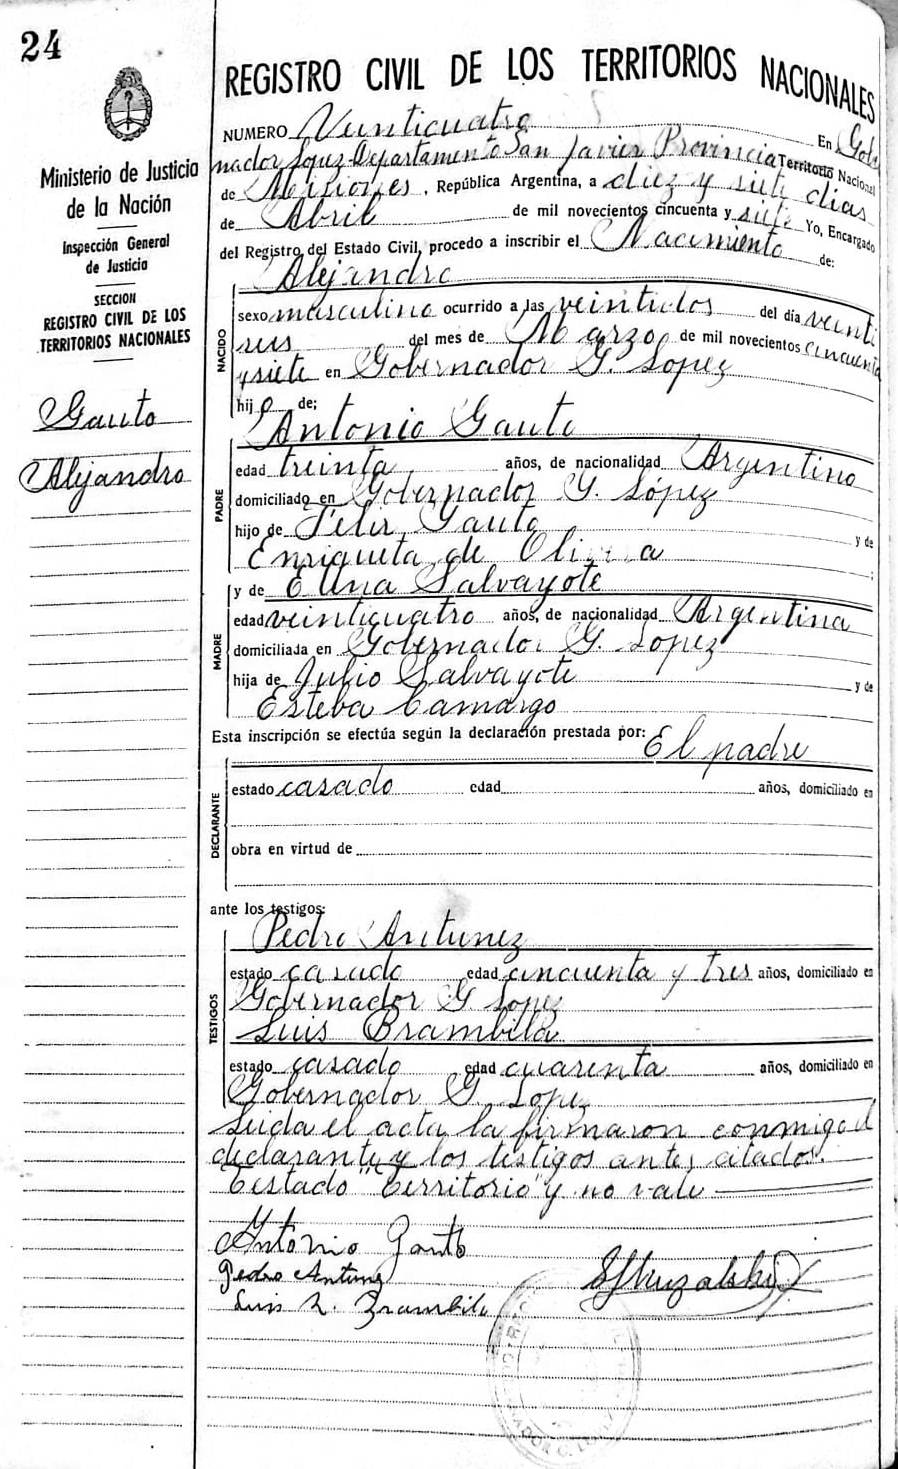 24
Ministerio de Justicia
de la Nación
Inspección General
de Justicia
SECCION
REGISTRO CIVIL DE LOS
TERRITORIOS NACIONALES
Gauto
Alejandro
REGISTRO CIVIL DE LOS TERRITORIOS NACIONALES
NUMERO Veinticuatro En Gober
nador López Departamento San Javier Provincia Territorio Nacional
de Misiones, República Argentina, a diez y siete dias
de Abril de mil novecientos cincuenta y siete Yo, Encargado
del Registro del Estado Civil, procedo a inscribir el Nacimiento de:
NACIDO
Alejandro
sexo masculino ocurrido a las veintidos del día veinti
seis del mes de Marzo de mil novecientos cincuenta
y siete en Gobernador G. Lopez
hijo de;
Antonio Gauto
PADRE
edad treinta años, de nacionalidad Argentino
domiciliado en Gobernador G. López
hijo de Felix Gauto y de
Enriqueta de
y de Elena Salvayote
MADRE
edad veinticuatro años, de nacionalidad Argentina
domiciliada en Gobernador G. Lopez
hija de Julio Salvayote y de
Esteba Camargo
Esta inscripción se efectúa según la declaración prestada por: El padre
DECLARANTE
estado casado edad años, domiciliado en
obra en virtud de
ante los testigos:
TESTIGOS
Pedro Antunez
estado casado edad cincuenta y tres años, domiciliado en
Gobernador G Lopez
Luis Brambila
estado casado edad cuarenta años, domiciliado en
Gobernador G. Lopez
Leida el acta la firmaron conmigo el
declarante y los testigos antes citados.
Testado "Territorio" y no vale
Antonio Gauto
Pedro Antunez
Luis R. Brambila